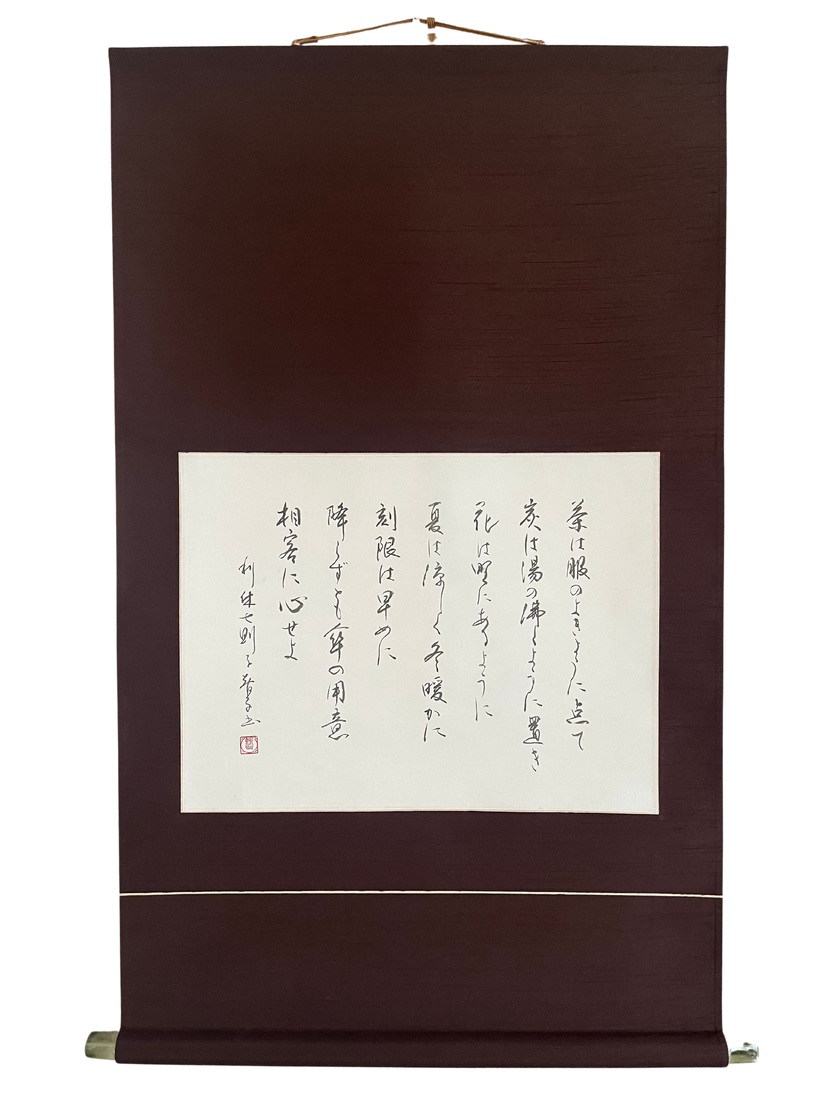 茶は服のよきように点て
炭は湯の沸くように置き
花は野にあるように
夏は涼しく冬暖かに
刻限は早めに
降らずとも傘の用意
相客に心せよ
利休七則